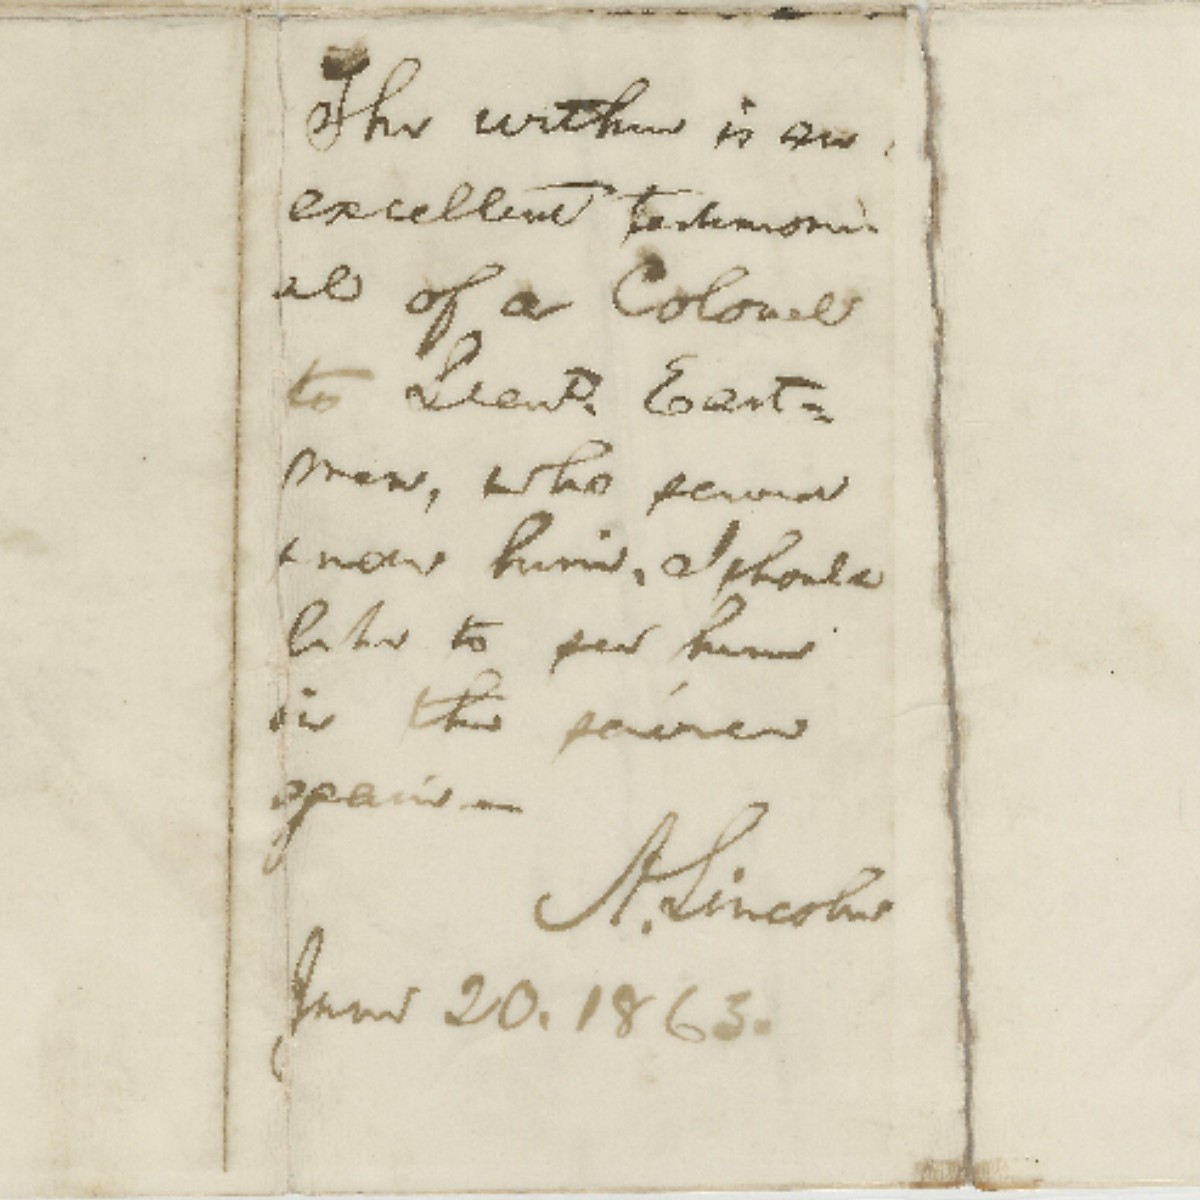 The within is an
excellent testimoni-
al of a Colonel
to Lieut. East-
man, who served
under him. I should
like to see him
in the service
again—
A. Lincoln
June 20. 1863.